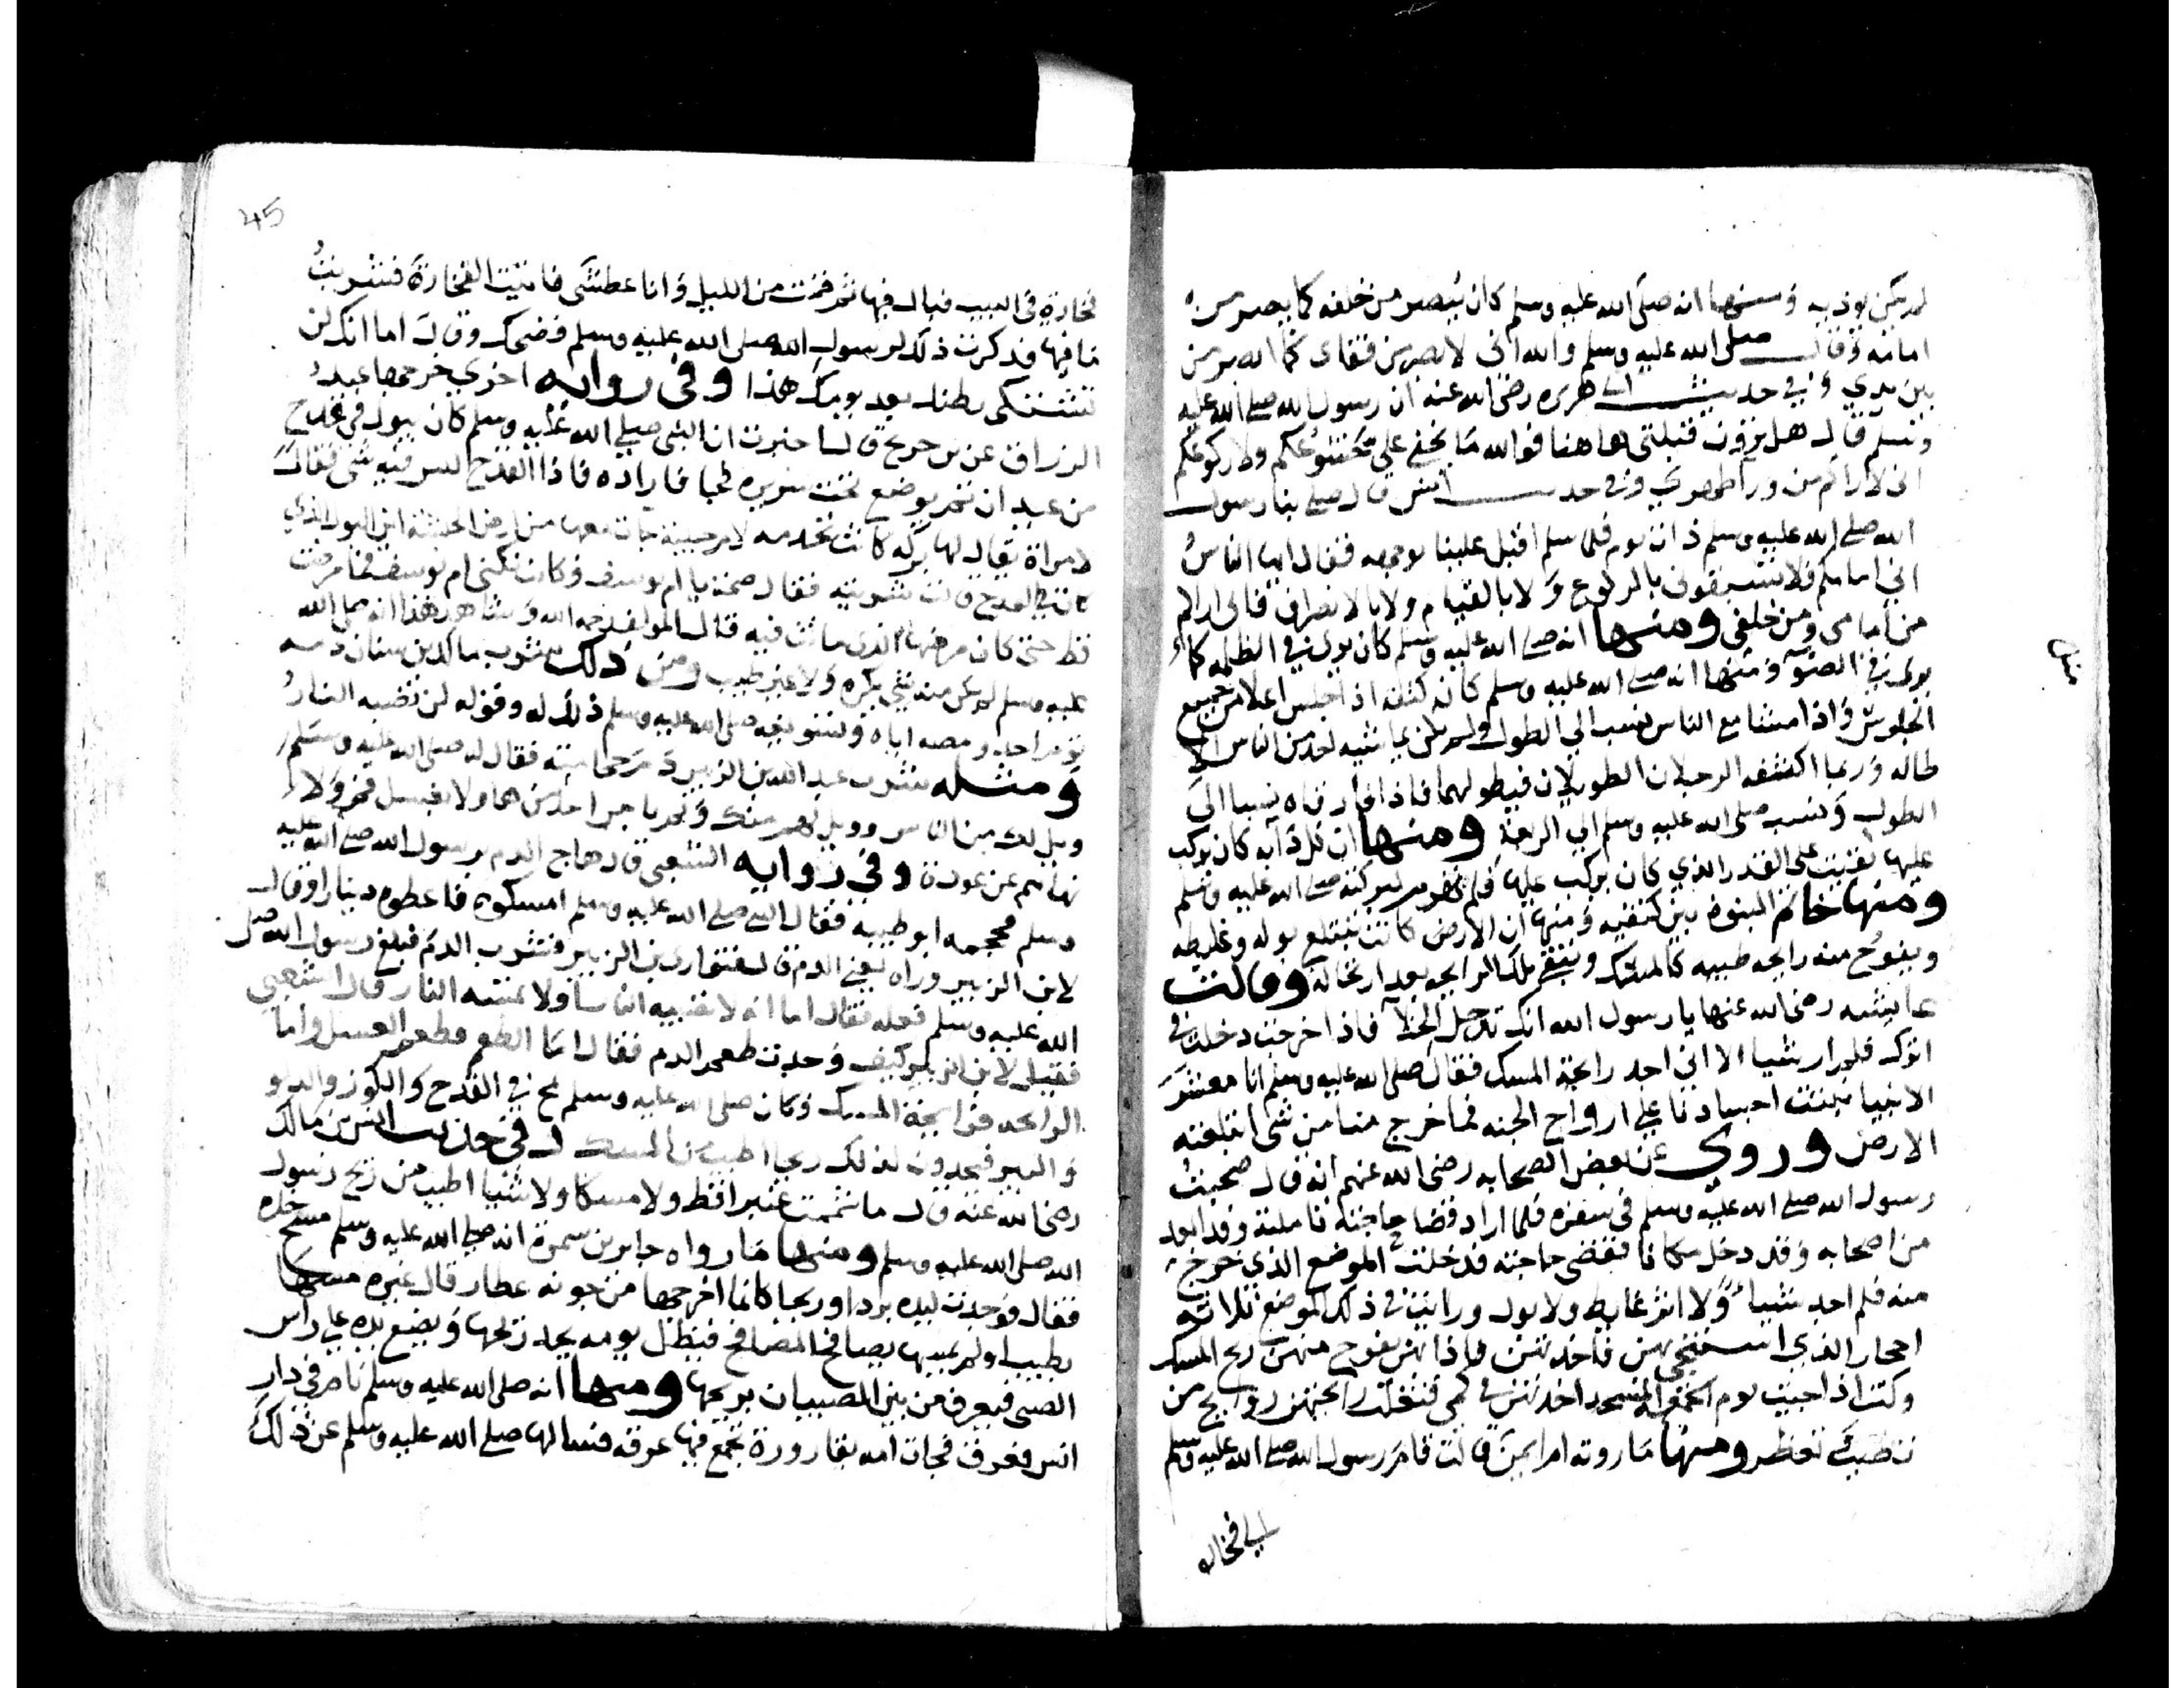 لم يكن يوذيه ومنها انه صلى الله عليه وسلم كان يبصر من خلفه كما يبصر من
امامه وقال صلى الله عليه وسلم والله اني لابصر من قفاى كما ابصر من
بين يدي وفي حديث ابي هريره رضى الله عنه ان رسول الله صلى الله عليه
وسلم قال هل ترون قبلتى هاهنا فوالله ما يخفى علي خشوعكم ولا ركوعكم
اني لاراكم من ورا ظهري وفي حديث انس قال صلى بنا رسول
الله صلى الله عليه وسلم ذات يوم فلما سلم اقبل علينا بوجهه فقال ايها الناس
اني امامكم فلا تسبقوني بالركوع ولا بالقيام ولا بالانصراف فاني اراكم
من امامى ومن خلفى ومنها انه صلى الله عليه وسلم كان يرى في الظلمه كما
يرى في الضوء ومنها انه صلى الله عليه وسلم كان كتفه اذا جلس اعلا من جميع
الجلوس واذا مشا مع الناس نسب الى الطول ولم يكن يماشيه احد من الناس الا
طاله وربما اكتنفه الرجلان الطويلان فيطولهما فاذا فارقاه نسبا الى
الطول ونسب صلى الله عليه وسلم الى الربعة ومنها ان كل دابه كان يركب
عليها بقيت على القدر الذي كان يركب عليها فلم تهرم لبركته صلى الله عليه وسلم
ومنها خاتم النبوة بين كتفيه ومنها ان الارض كانت تبتلع بوله وغايطه
ويفوح منه رايحه طيبه كالمسك وتبقى تلك الرايحه بعد ارتحاله وقالت
عايشه رضى الله عنها يا رسول الله انك تدخل الخلا فاذا خرجت دخلت في
اثرك فلم ار شيا الا اني اجد رايحة المسك فقال صلى الله عليه وسلم انا معشر
الانبيا تنبت اجسادنا على ارواح الجنه فما خرج منا من شى ابتلعته
الارض وروي عن بعض الصحابه رضى الله عنهم انه قال صحبت
رسول الله صلى الله عليه وسلم في سفره فلما اراد قضا حاجته تاملته وقد ابعد
من اصحابه وقد دخل مكانا فقضى حاجته فدخلت الموضع الذي خرج
منه فلم اجد شيا ولا اثر غايط ولا بول ورايت في ذلك الموضع ثلاثة
احجار الذي استنجى بهن فاخذتهن فاذا بهن يفوح منهن ريح المسك
وكنت اذا جيت يوم الجمعه المسجد اخذتهن في كمي فتغلب رايحتهن روايح من
تطيب وتعطر ومنها ما روته ام ايمن قالت قام رسول الله صلى الله عليه وسلم
الى فخاره
45
فخارة في البيت فبال فيها ثم قمت من الليل وانا عطشى فاتيت الفخارة فشربت
ما فيها فذكرت ذلك لرسول الله صلى الله عليه وسلم فضحك وقال اما انك لن
تشتكى بطنك بعد يومك هذا وفي روايه اخري خرجها عبد
الرزاق عن بن جريج قال اخبرت ان النبى صلى الله عليه وسلم كان يبول في قدح
من عيدان ثم يوضع تحت سريره فجا فاراده فاذا القدح ليس فيه شى فقال
لامراة يقال لها بركه كانت تخدمه لام حبيبة جات معها من ارض الحبشة اين البول الذي
كان في القدح قالت شربته فقال صحة يا ام يوسف وكانت تكنى ام يوسف فما مرضت
قط حتى كان مرضها الذى ماتت فيه قال المولف رحمه الله وشاهد هذا انه صلى الله
عليه وسلم لم يكن منه شى يكره ولا غير طيب ومن ذلك شرب مالك بن سنان دمه
يوم احد ومصه اياه وتسويغه صلى الله عليه وسلم ذلك له وقوله لن تصيبه النار
ومثله شرب عبد الله بن الزبير دم حجامته فقال له صلى الله عليه وسلم
ويل لك من الناس وويل لهم منك ولم يامر احدا منهما ولا بغسل فم ولا
نهاهم عن عودة وفي روايه الشعبى قال هاج الدم برسول الله صلى الله عليه
وسلم فحجمه ابو طيبه فقال النبي صلى الله عليه وسلم اشكموه فاعطوه دينارا وقال
لابن الزبير واره يعني الدم قال فتوارى بن الزبير فشرب الدم فبلغ رسول الله صلى
الله عليه وسلم فعله فقال اما انه لا تصيبه النار ولا تمسه النار قال الشعبي
فقيل لابن الزبير كيف وجدت طعم الدم فقال اما الطعم فطعم العسل واما
الرايحه فرايحة المسك وكان صلى الله عليه وسلم يمج في القدح والكوز والدلو
والبير فيجدون لذلك ريحا اطيب من المسك وفي حديث انس بن مالك
رضى الله عنه قال ما شممت عنبرا قط ولا مسكا ولا شيا اطيب من ريح رسول
الله صلى الله عليه وسلم ومنها ما رواه جابر بن سمرة انه صلى الله عليه وسلم مسح خده
فقال فوجدت ليده بردا وريحا كانما اخرجها من جونه عطار قال غيره مسها
بطيب او لم يمسها يصافح المصافح فيظل يومه يجد ريحها ويضع يده على راس
الصبى فيعرف من بين الصبيان بريحها ومنها انه صلى الله عليه وسلم نام في دار
انس فعرق فجات امه بقارورة تجمع فيها عرقه فسالها صلى الله عليه وسلم عن ذلك